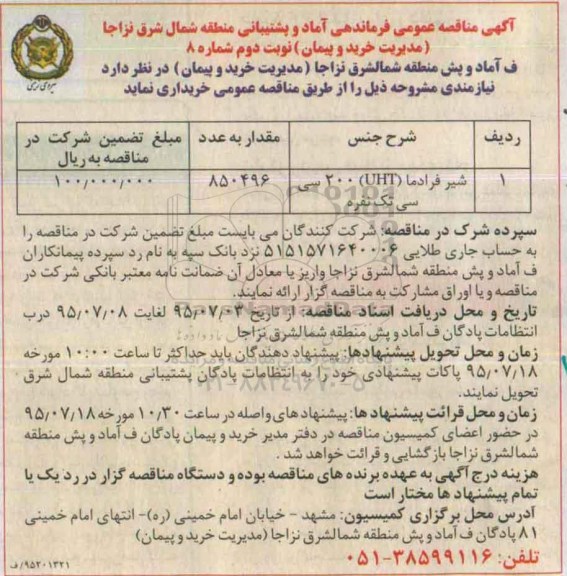 آگهی مناقصه عمومی فرماندهی آماد و پشتیبانی منطقه شمال شرق نزاجا
(مدیریت خرید و پیمان) نوبت دوم شماره ۸
ف آماد و پش منطقه شمالشرق نزاجا (مدیریت خرید و پیمان) در نظر دارد
نیازمندی مشروحه ذیل را از طریق مناقصه عمومی خریداری نماید
ردیف شرح جنس مقدار به عدد مبلغ تضمین شرکت در
مناقصه به ریال
۱ شیر فرادما (UHT) ۲۰۰ سی ۸۵۰۴۹۶ ۱۰۰,۰۰۰,۰۰۰
سی تک نفره
سپرده شرک در مناقصه: شرکت کنندگان می بایست مبلغ تضمین شرکت در مناقصه را
به حساب جاری طلایی ۵۱۵۱۵۷۱۶۴۰۰۰۶ نزد بانک سپه به نام رد سپرده پیمانکاران
ف آماد و پش منطقه شمالشرق نزاجا واریز یا معادل آن ضمانت نامه معتبر بانکی شرکت در
مناقصه و یا اوراق مشارکت به مناقصه گزار ارائه نمایند.
تاریخ و محل دریافت اسناد مناقصه: از تاریخ ۹۵/۰۷/۰۳ لغایت ۹۵/۰۷/۰۸ درب
انتظامات پادگان ف آماد و پش منطقه شمالشرق نزاجا
زمان و محل تحویل پیشنهادها: پیشنهاد دهندگان باید حداکثر تا ساعت ۱۰:۰۰ مورخه
۹۵/۰۷/۱۸ پاکات پیشنهادی خود را به انتظامات پادگان پشتیبانی منطقه شمال شرق
تحویل نمایند.
زمان و محل قرائت پیشنهاد ها: پیشنهاد های واصله در ساعت ۱۰/۳۰ مورخه ۹۵/۰۷/۱۸
در حضور اعضای کمیسیون مناقصه در دفتر مدیر خرید و پیمان پادگان ف آماد و پش منطقه
شمالشرق نزاجا بازگشایی و قرائت خواهد شد.
هزینه درج آگهی به عهده برنده های مناقصه بوده و دستگاه مناقصه گزار در رد یک یا
تمام پیشنهاد ها مختار است
آدرس محل برگزاری کمیسیون: مشهد - خیابان امام خمینی (ره)- انتهای امام خمینی
۸۱ پادگان ف آماد و پش منطقه شمالشرق نزاجا (مدیریت خرید و پیمان)
تلفن: ۳۸۵۹۹۱۱۶-۰۵۱
۹۵۲۰۱۳۲۱/ف